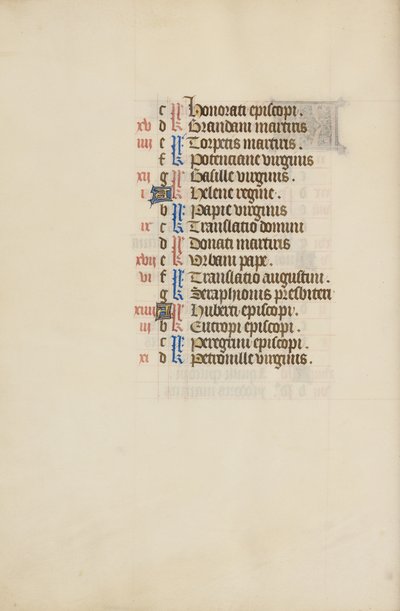 c N Honorati episcopi.
xv d k Brandani martiris
iiii e N Torpetis martiris.
f k Potenciane virginis
xii g N Basille virginis.
i A k Helene regine.
b N Papie virginis
ix c k Translatio domini
d N Donati martiris
xvii e k Urbani pape.
vi f N Translatio augustini.
g k Seraphionis presbiteri
xiiii A N Huberti episcopi.
iii b k Eutropi episcopi.
c N Peregrini episcopi.
xi d k Petronille virginis.